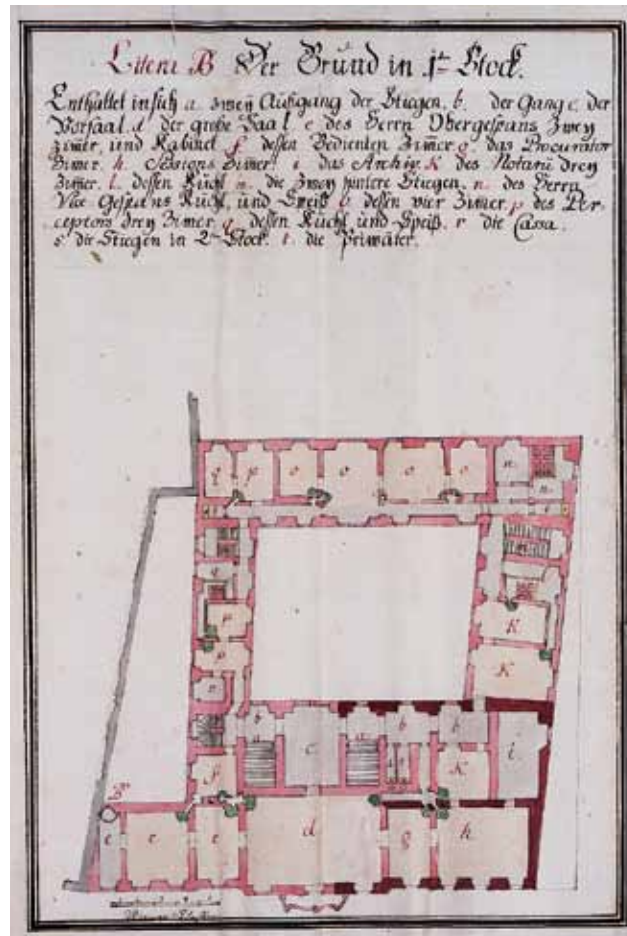 Litera B Der Grund in 1t Stock.
Enthaltet in sich a. zwey Aufgang der Stiegen, b. der Gang c. der
Vorsaal. d der große Saal e des Herrn Obergespans Zwey
zimer, und Kabinet f dessen Bedienten Zimer g das Procurator
Zimer. h. Sessions Zimer. i das Archiv. K des Notarii drey
Zimer. l. dessen Kuchl m. die zwey hintere Stiegen. n. des Herrn
Vice Gespans Kuchl, und Speiß o dessen vier Zimer. p des Per-
ceptors drey Zimer. q dessen Kuchl und Speiß. r die Cassa.
s die Stiegen in 2t Stock. t. die Privaten.
q p o o o o n
n
q
K
p
K
p
r
b b b
c i
f K
B
e e e d g h